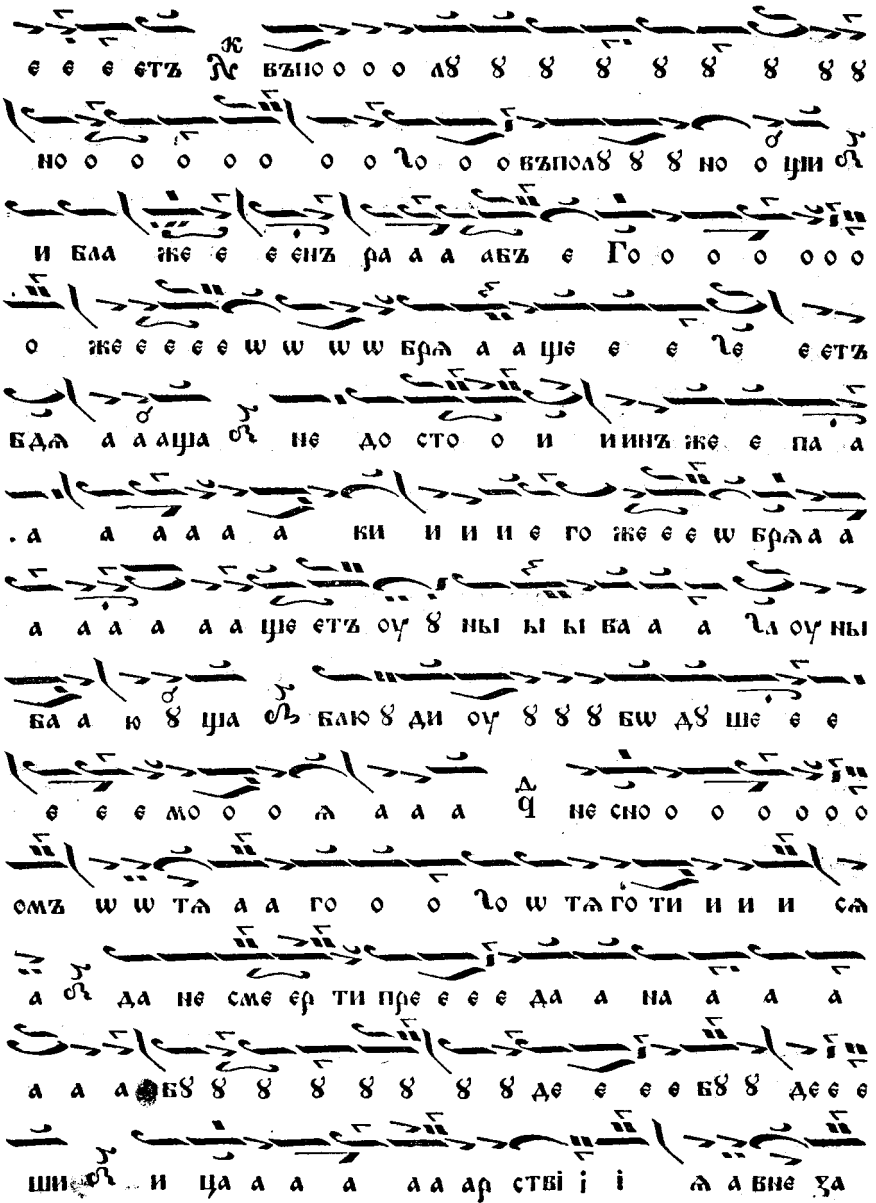 е е е етъ к въпо о о о лꙋ ꙋ ꙋ ꙋ ꙋ ꙋ ꙋ ꙋ ꙋ
но о о о о о о о о го о о въполꙋ ꙋ ꙋ но о щи
и бла же е е енъ ра а а а абъ е Го о о о о о о
о же е е е е ѡ ѡ ѡ ѡ брѧ а а ще е е ге е етъ
бдѧ а а аща не до сто о и и инъ же е па а
а а а а а а ки и и и е го же е е ѡ брѧ а а
а а а а а а ще етъ оу ꙋ ны ы ы ва а а гл оу ны
ва а ю ꙋ ща блю ꙋ ди оу ꙋ ꙋ ꙋ бѡ дꙋ ше е е
е е е мо о о ѧ а а а д ч не сно о о о о о
омъ ѡ ѡ тѧ а а го о о го ѡ тѧ го ти и и и сѧ
а да не сме ер ти пре е е е да а на а а а
а а а бꙋ ꙋ ꙋ ꙋ ꙋ ꙋ ꙋ ꙋ де е е е бꙋ ꙋ де е е
ши и ца а а а а ар ствї ї ї ѧ а вне ꙁа